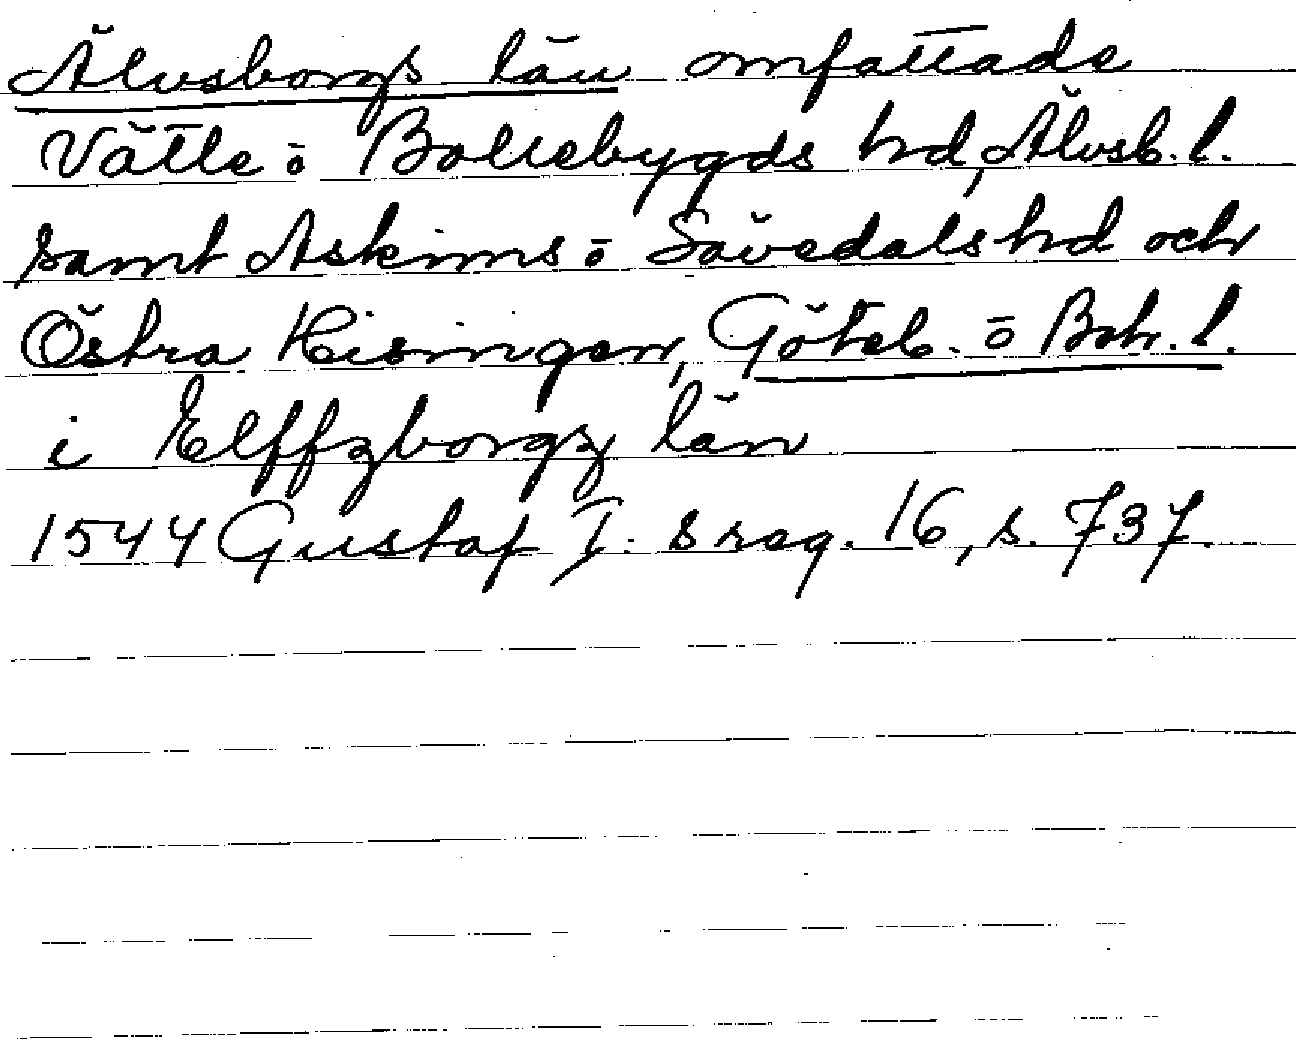 Älvsborgs län omfattade
Vättle o Bollebygds hd, Älvsb. l.
samt Askims o Sävedals hd och
Östra Hisingen, Göteb. o Boh. l.
i Elffzborgz län
1544 Gustaf I:s reg. 16, s. 737.